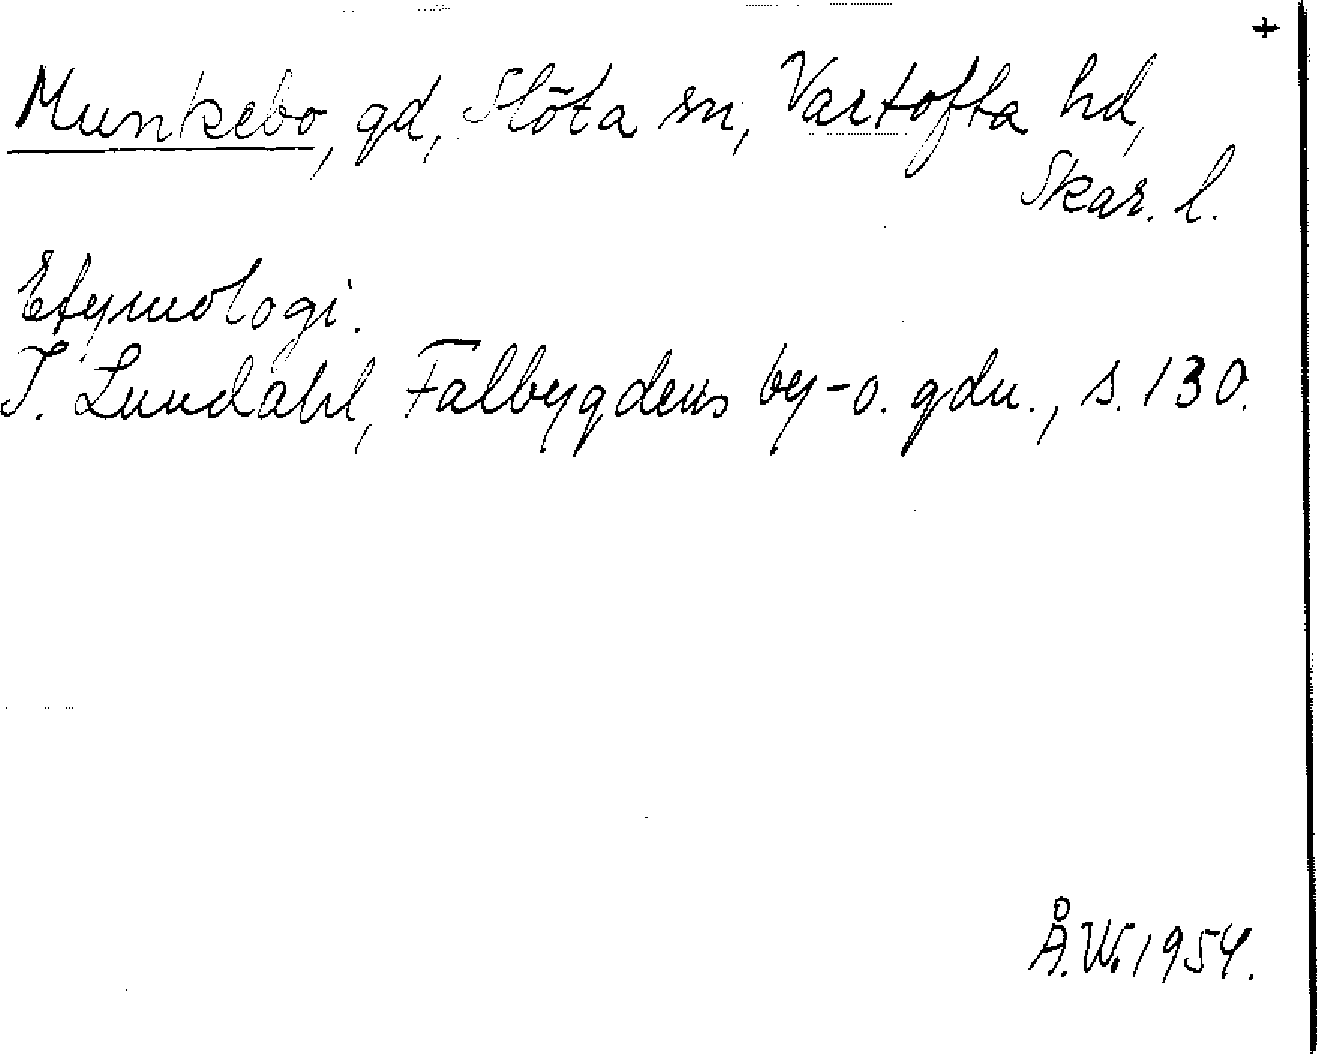 +
Munkebo, gd, Slöta sn, Vartofta hd,
Skar. l.
Etymologi.
I. Lundahl, Falbygdens by- o. gdn., s. 130.
Å.W. 1954.